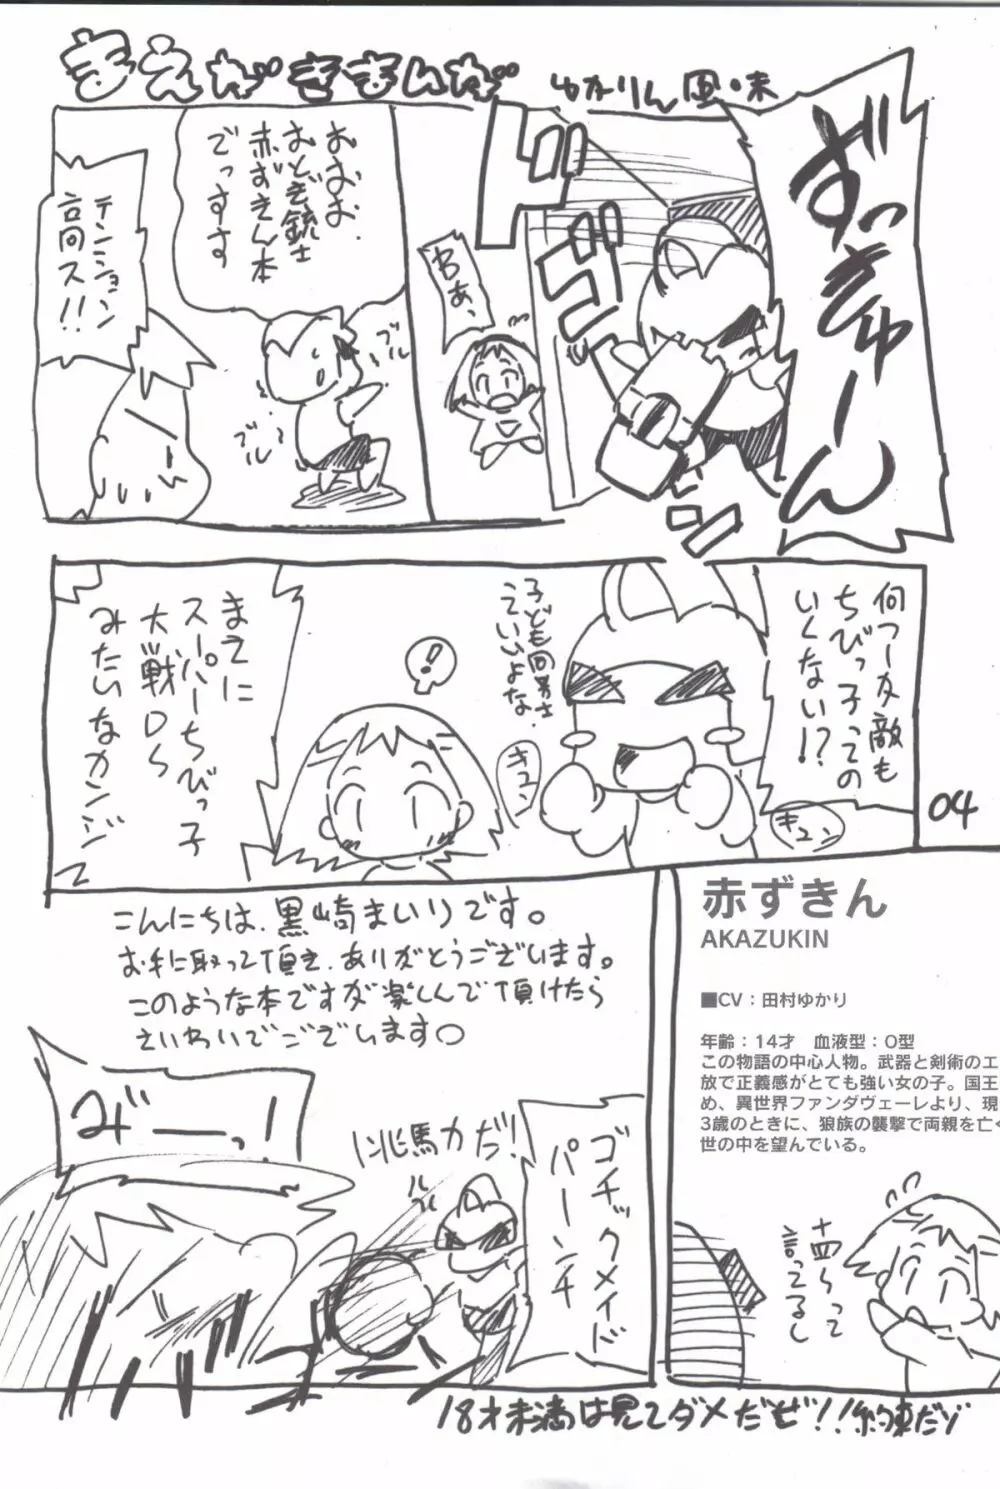 まえがきまんが
ゆかりん風味
ずっきゅーん
ド
ドゴン
わぁ、
おおお、
おとぎ銃士
赤ずきん本
でっすす
ブル
ブル
テンション
高ス!!
何つーか敵も
ちびっ子っての
いくない!?
キュン
子ども同士
っていいよな。
キュン
!
まさに
スーパーちびっ子
大戦DS
みたいなカンジ
04
こんにちは、黒崎まいりです。
お手に取って頂き、ありがとうございます。
このような本ですが楽しんで頂けたら
さいわいでございます○
赤ずきん
AKAZUKIN
■CV:田村ゆかり
年齢:14才 血液型:O型
この物語の中心人物。武器と剣術のエ
放で正義感がとても強い女の子。国王
め、異世界ファンダヴェーレより、現
3歳のときに、狼族の襲撃で両親を亡く
世の中を望んでいる。
十四って
言ってるし
ゴチックメイド
パーンチ
兆馬力だ!
みぎーーっ!
18才未満は見てダメだぜ!!約束だゾ